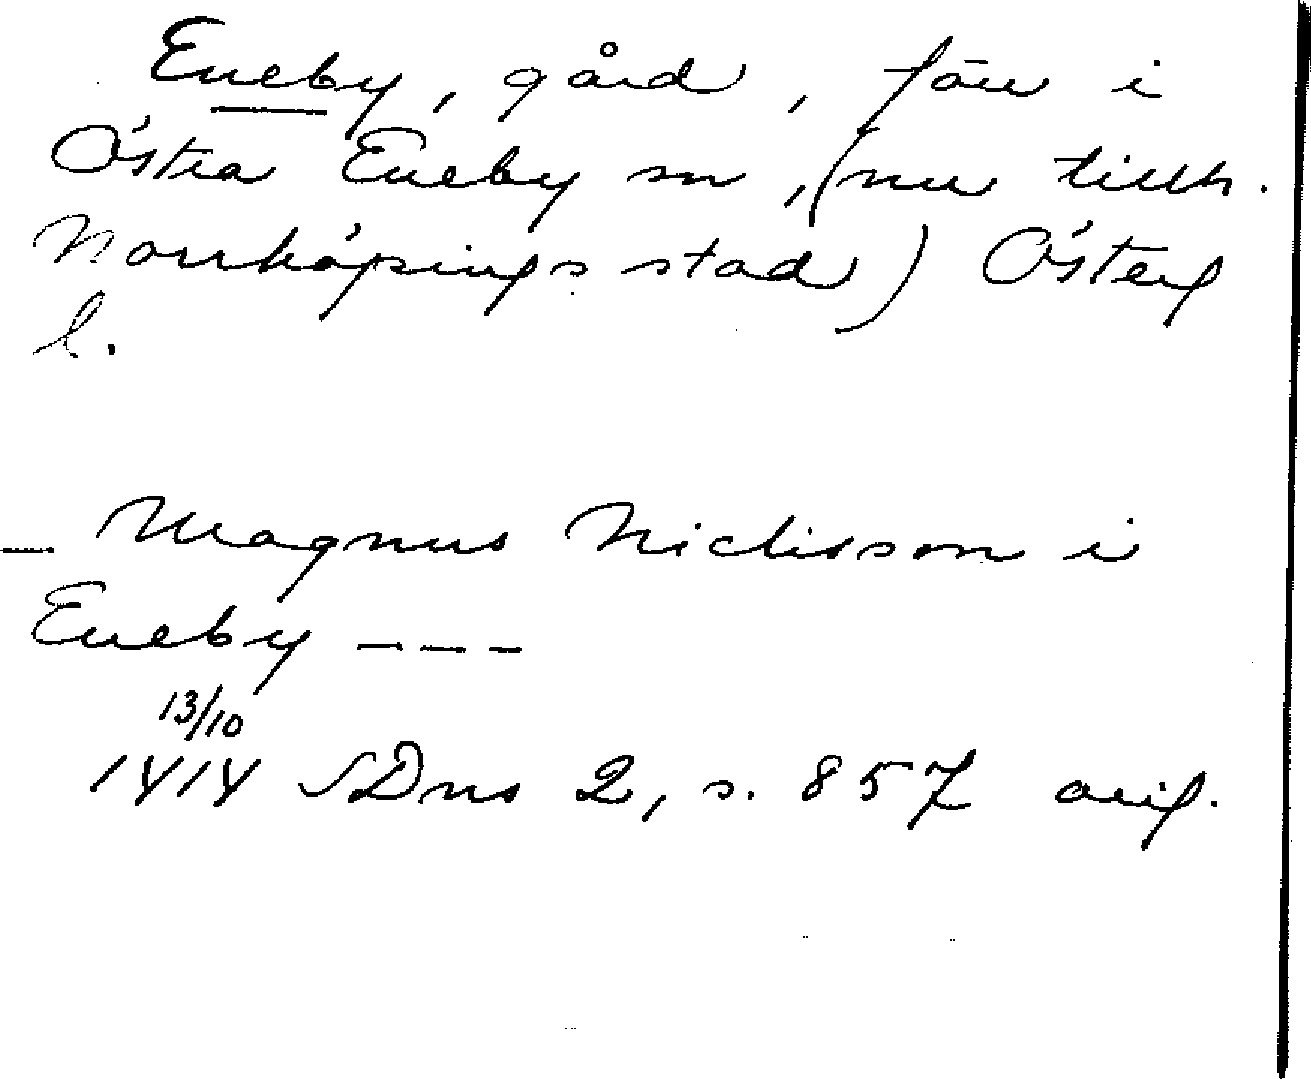 Eneby, gård, förr i
Östra Eneby sn, (nu tillh.
Norrköpings stad) Österg
l.
— Magnus Niclisson i
Eneby - - - -
13/10
1414 SDns 2, s. 857 orig.